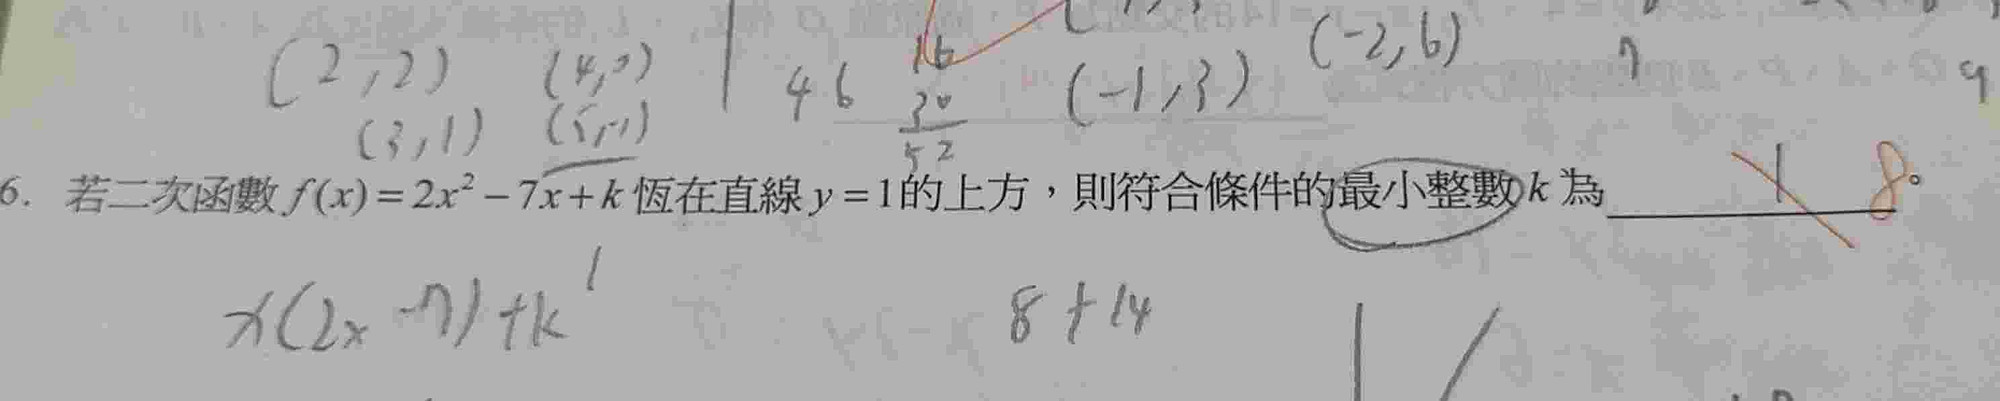 (-2,6) 7
(2,2) (4,0) 46 16 (-1,3) 9
(3,1) (5,-1) 30
52
6. 若二次函數 f(x)=2x²-7x+k 恆在直線 y=1的上方，則符合條件的最小整數 k 為 1 8。
x(2x-7)+k 1 8+14